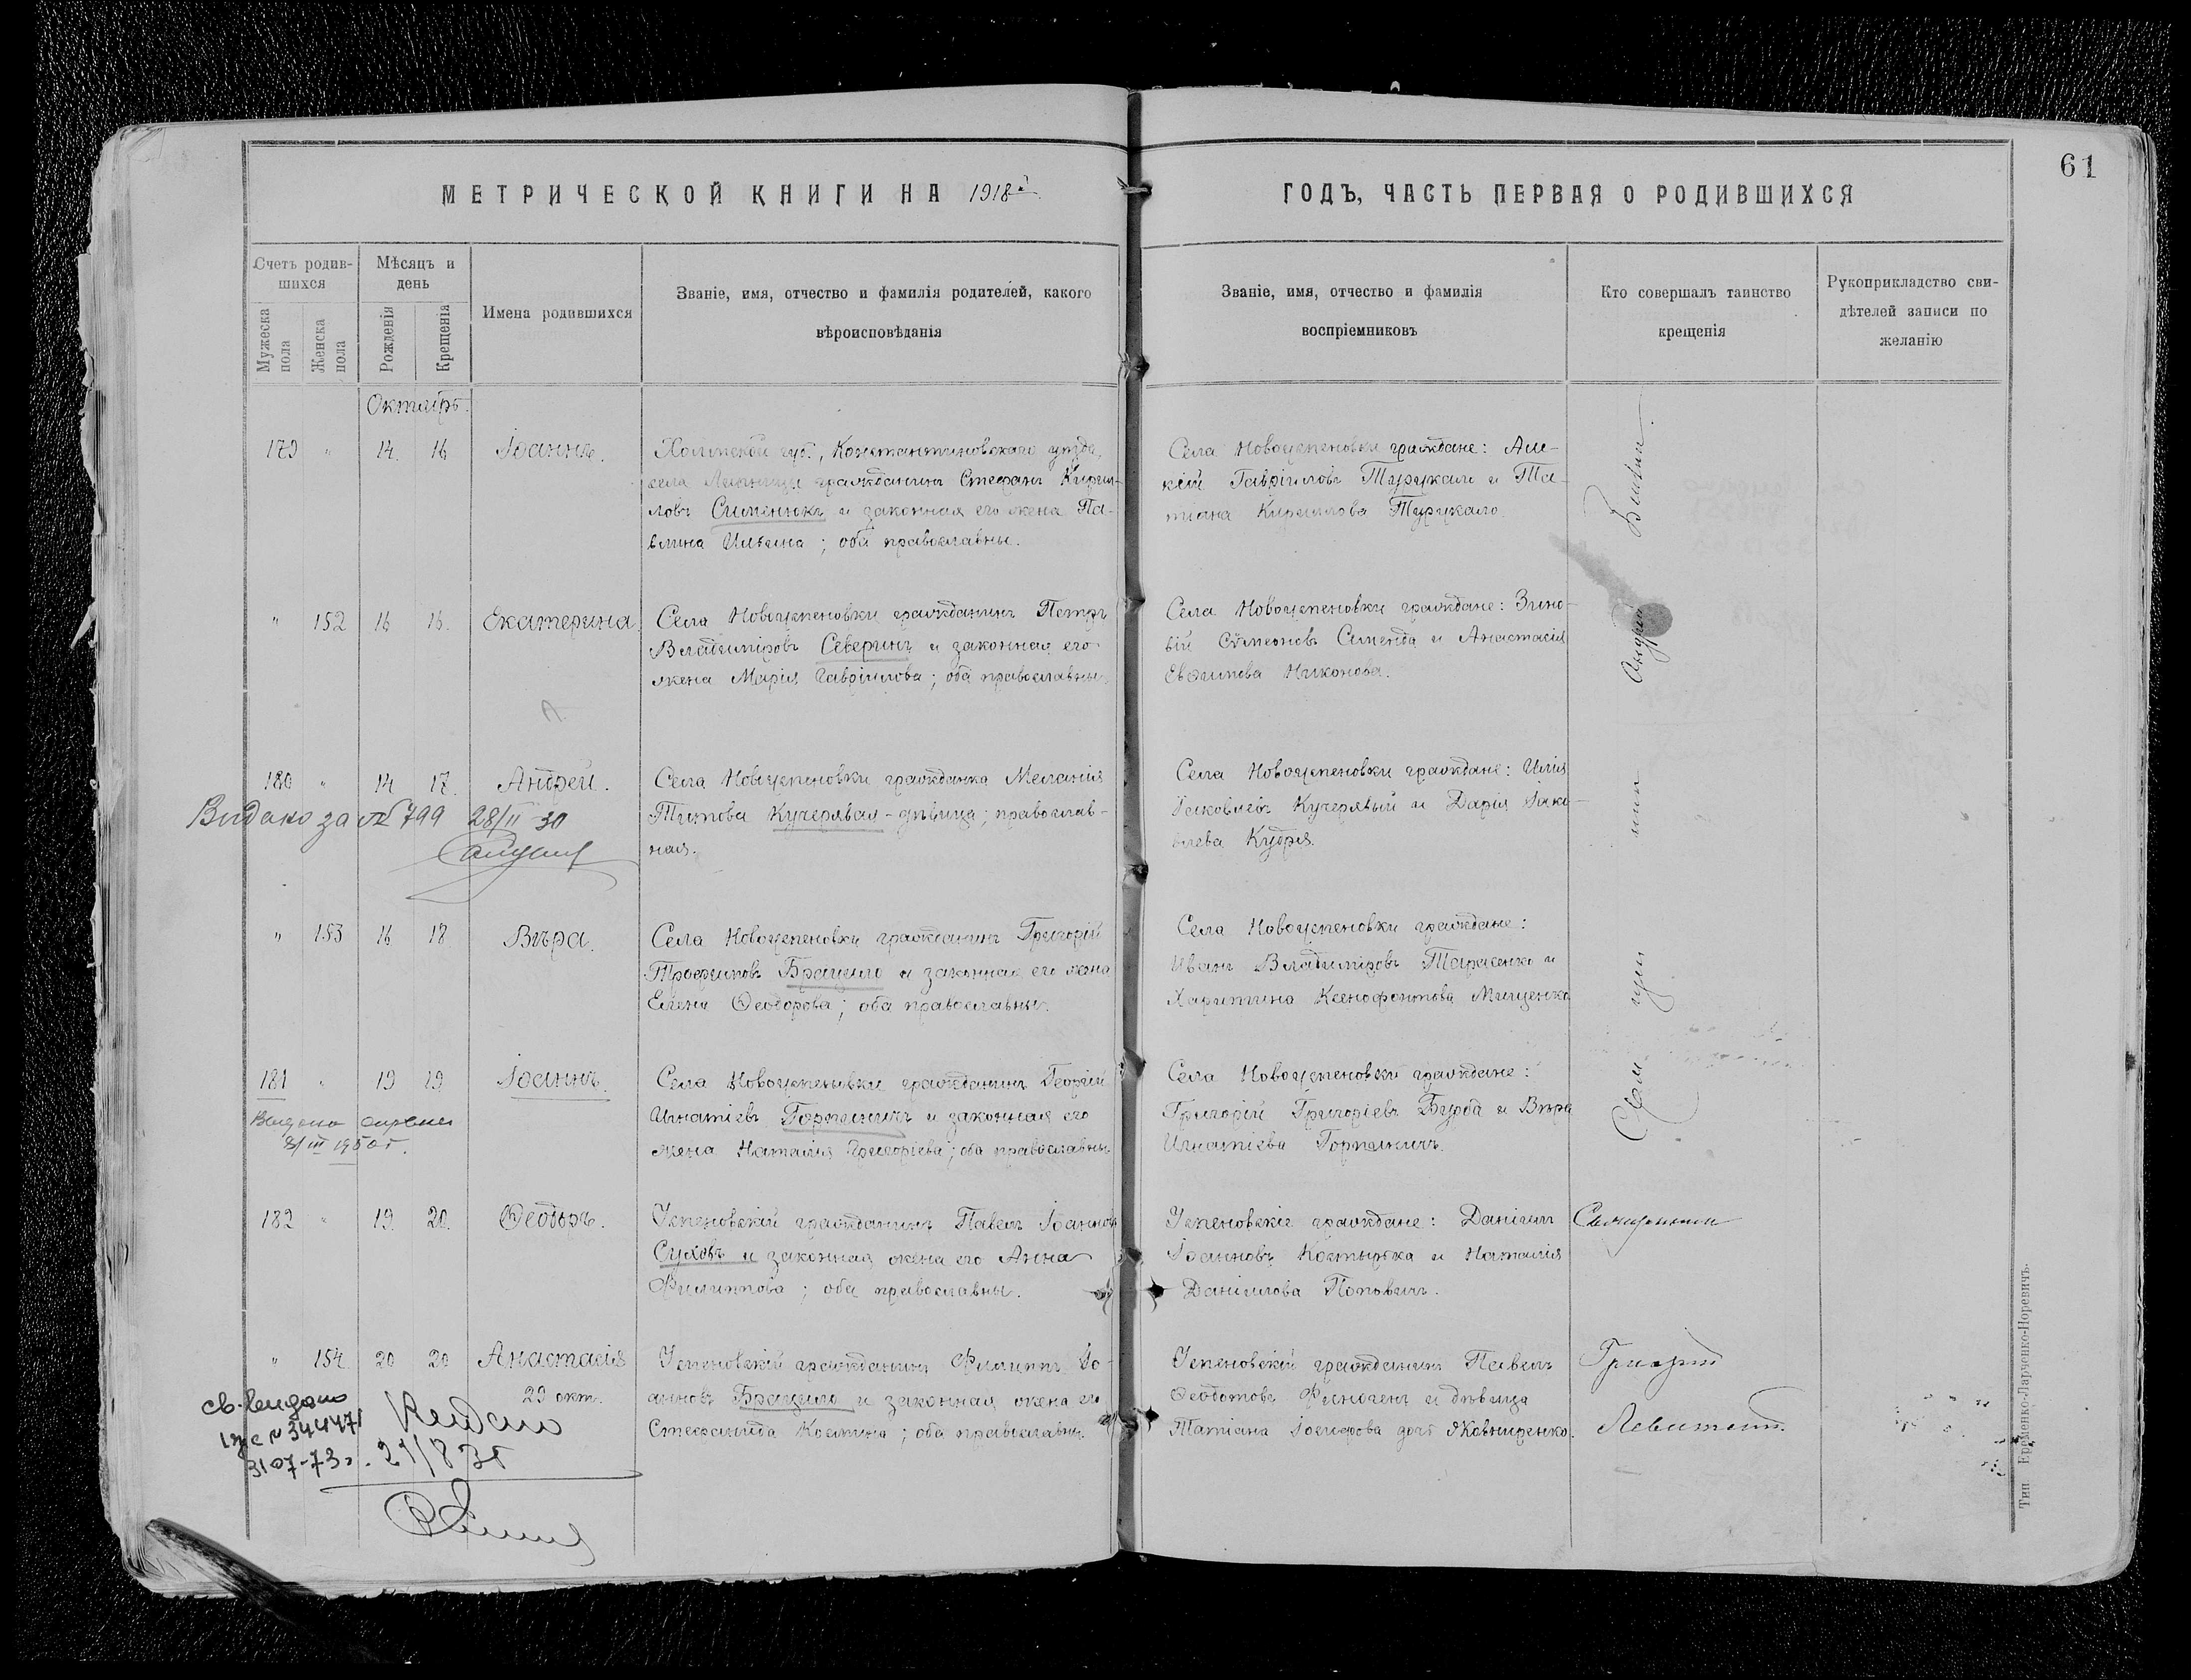 61
МЕТРИЧЕСКОЙ КНИГИ НА 1918й
ГОДЪ, ЧАСТЬ ПЕРВАЯ О РОДИВШИХСЯ
Счетъ родив-
шихся
Мѣсяцъ и
день
Мужеска пола
Женска пола
Рожденія
Крещенія
Имена родившихся
Званіе, имя, отчество и фамилія родителей, какого
вѣроисповѣданія
Званіе, имя, отчество и фамилія
воспріемниковъ
Кто совершалъ таинство
крещенія
Рукоприкладство сви-
дѣтелей записи по
желанію
Октябрь.
179 " 14. 16 Іоаннъ.
Холмской губ., Константиновскаго уѣзда,
села гражданинъ Стефанъ Кирил-
ловъ Сименюкъ и законная его жена Па-
влина Ильина; оба православны.
Села Новоуспеновки граждане:
Гавріиловъ Турукало и Та-
тіана Кириллова Турукало.
" 152 16 16. Екатерина.
Села Новоуспеновки гражданинъ Петръ
Владиміровъ Северинъ и законная его
жена Марія Гавріилова; оба православны.
Села Новоуспеновки граждане: Зино-
вій Сѵмеоновъ и Анастасія
Евѳимова Никонова.
180 " 14 17. Андрей.
Села Новоуспеновки гражданка Меланія
Титова Кучерявая - дѣвица; православ-
ная.
Села Новоуспеновки граждане: Илія
Іаковлевъ Кучерявый и Дарія Іако-
влева Кудря.
Видано за № 799 28/II 30
" 153 16 18 Вѣра.
Села Новоуспеновки гражданинъ Григорій
Трофимовъ Брацило и законная его жена
Елена Ѳеодорова; оба православны.
Села Новоуспеновки граждане:
Иванъ Владиміровъ Тарасенко и
Харитина Ксенофонтова Мищенко
181 " 19 19 Іоаннъ.
Села Новоуспеновки гражданинъ Георгій
Игнатіевъ Горпиничъ и законная его
жена Наталія Григоріева; оба православны
Села Новоуспеновки граждане:
Григорій Григоріевъ Бурба и Вѣра
Игнатіева Горпиничъ.
8/III 1950 г.
182 " 19. 20. Ѳеодоръ.
Успеновскій гражданинъ Павелъ Іоанновъ
Суховъ и законная жена его Анна
Филиппова; оба православны.
Успеновскіе граждане: Даніилъ
Іоанновъ Костырка и Наталія
Даніилова Поповичъ.
Священникъ
" 154 20 20 Анастасія
29 окт.
Успеновскій гражданинъ Филиппъ Іо-
анновъ Брацило и законная жена его
Стефанида Косьмина; оба православны.
Успеновскій гражданинъ Павелъ
Ѳеодотовъ Финогенъ и дѣвица
Татіана Іосифова дочь Яковниренко.
Григорій
Левитскій.
св. выдано
№ 344471
31 07-73 г.
Видано
21/8 35
Священникъ Андрей Билкин.
Тип Еременко-Ларченко-Норевичъ.